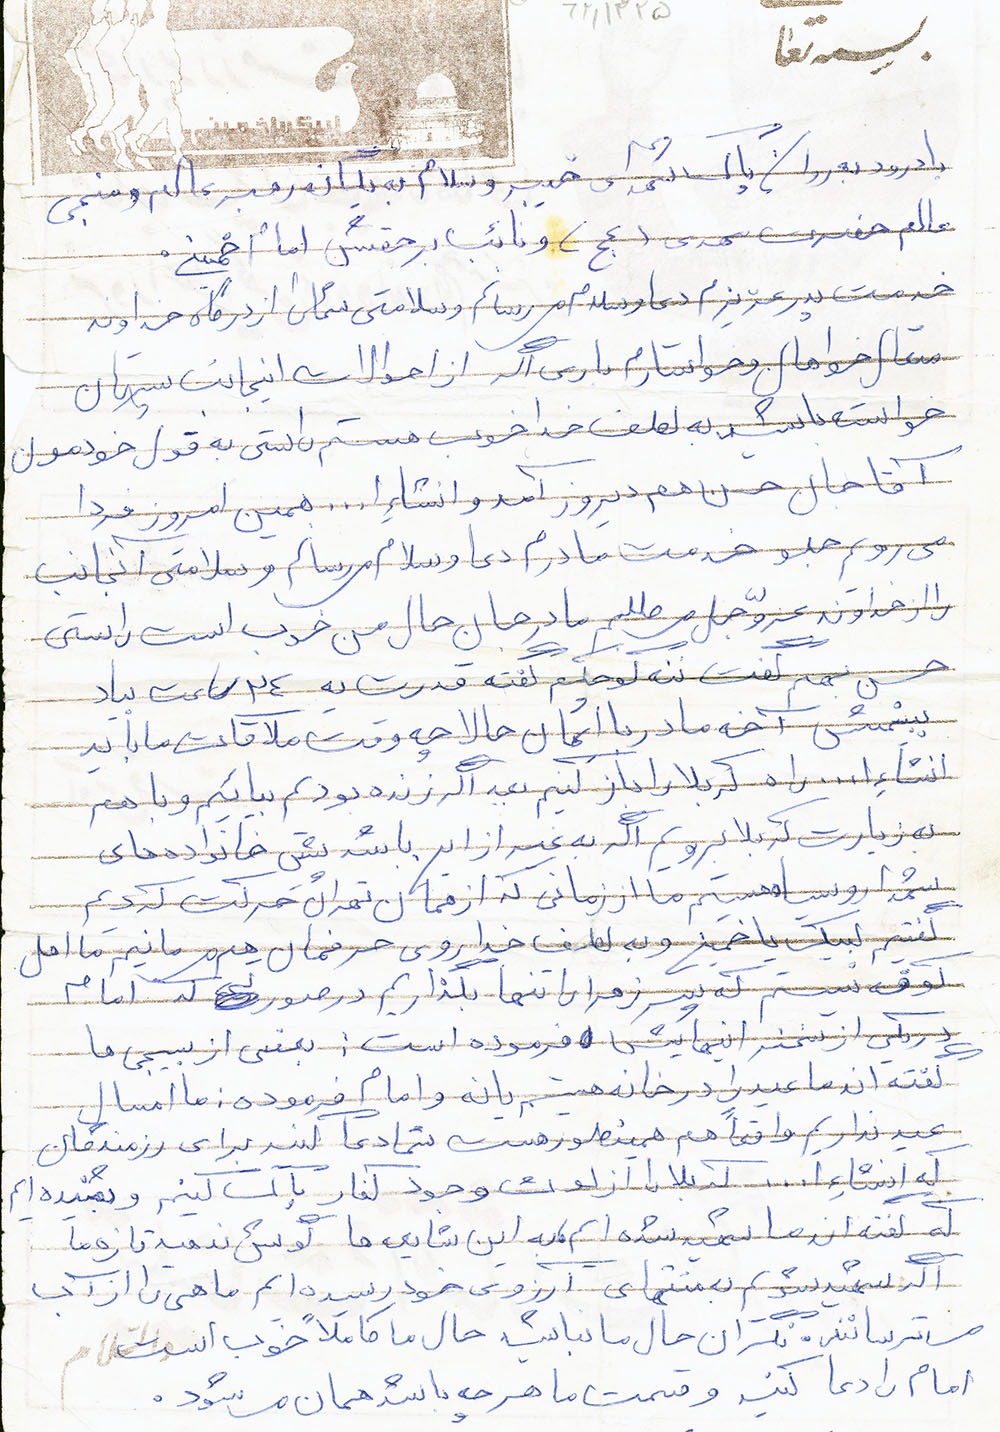 ۶۲/۱۳۲۵
بسمه تعالی
لبیک یا خمینی
با درود به روان پاک شهدای وسلام به یگانه رهبر عالم و منجی
عالم حضرت مهدی (عج) و نائب بر حقش امام خمینی.
خدمت پدر عزیزم دعا و سلام می رسانم و سلامتی شما را از درگاه خداوند
متعال خواهان و خواستارم باری اگر از احوالات اینجانب پسرتان
خواسته باشید به لطف خدا خوب هستم راستی به قول خودمون
آقا جان حسن هم دیروز آمد و انشاءا... همین امروز فردا
می رویم جلو خدمت مادرم دعا و سلام می رسانم و سلامتی آنجانب
را از خداوند عزوجل می طلبم مادر جان حال من خوب است راستی
حسن بهم گفت ننه گفته قدرت یه ۲٤ ساعت بیاد
ببینمش آخه مادر با ایمان حالا چه وقت ملاقات ما باید
انشاءا... راه کربلا را باز کنیم بعد اگر زنده بودیم بیائیم و با هم
به زیارت کربلا برویم اگر به غیر از این باشد پیش خانواده های
شهدا روسیاه هستیم ما از زمانی که از تهران حرکت کردیم
گفتیم لبیک یا خمینی و به لطف خدا روی حرفمان هم می مانیم ما اهل
کوفه نیستیم که پسر زهرا را تنها بگذاریم در صورتی که امام
در یکی از سخنرانیهایش فرموده است: بعضی از بسیجی ها
گفته اند ما عید را در خانه هستیم یا نه و امام فرموده: ما امسال
عید نداریم واقعاً هم همینطور هست شما دعا کنید برای رزمندگان
که انشاءا... کربلا را از لوث وجود کفار پاک کنیم و شنیده ایم
که گفته اند ما شهید شده ایم به این شایعه ها گوش ندهید تازه ما
اگر شهید شویم به منتهای آرزوی خود رسیده ایم ماهی را از آب
می ترسانند. نگران حال ما نباشید حال ما کاملاً خوب است
امام را دعا کنید و قسمت ما هر چه باشد همان می شود.
والسلام